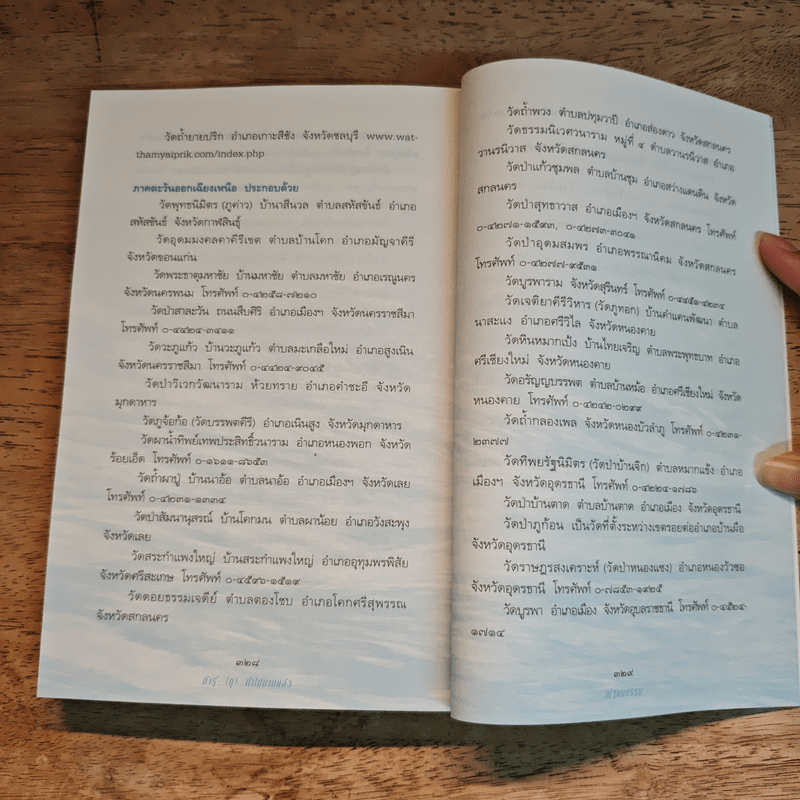 วัดถ้ำยายปริก อำเภอเกาะสีชัง จังหวัดชลบุรี www.wat-
thamyaiprik.com/index.php
ภาคตะวันออกเฉียงเหนือ ประกอบด้วย
วัดพุทธนิมิตร (ภูค่าว) บ้านาสีนวล ตำบลสหัสขันธ์ อำเภอ
สหัสขันธ์ จังหวัดกาฬสินธุ์
วัดอุดมมงคลคาคีรีเขต ตำบลบ้านโคก อำเภอมัญจาคีรี
จังหวัดขอนแก่น
วัดพระธาตุมหาชัย บ้านมหาชัย ตำบลมหาชัย อำเภอเรณูนคร
จังหวัดนครพนม โทรศัพท์ ๐-๔๒๕๘-๗๒๑๐
วัดป่าสาละวัน ถนนสืบศิริ อำเภอเมืองฯ จังหวัดนครราชสีมา
โทรศัพท์ ๐-๔๔๒๔-๓๔๑๑
วัดวะภูแก้ว บ้านวะภูแก้ว ตำบลมะเกลือใหม่ อำเภอสูงเนิน
จังหวัดนครราชสีมา โทรศัพท์ ๐-๔๔๒๔-๙๐๔๕
วัดป่าวิเวกวัฒนาราม ห้วยทราย อำเภอคำชะอี จังหวัด
มุกดาหาร
วัดภูจ้อก้อ (วัดบรรพตคีรี) อำเภอเนินสูง จังหวัดมุกดาหาร
วัดผาน้ำทิพย์เทพประสิทธิ์วนาราม อำเภอหนองพอก จังหวัด
ร้อยเอ็ด โทรศัพท์ ๐-๑๖๑๑-๘๖๕๓
วัดถ้ำผาปู่ บ้านนาอ้อ ตำบลนาอ้อ อำเภอเมืองฯ จังหวัดเลย
โทรศัพท์ ๐-๔๒๓๑-๑๓๓๔
วัดป่าสัมนานุสรณ์ บ้านโคกมน ตำบลผาน้อย อำเภอวังสะพุง
จังหวัดเลย
วัดสระกำแพงใหญ่ บ้านสระกำแพงใหญ่ อำเภออุทุมพรพิสัย
จังหวัดศรีสะเกษ โทรศัพท์ ๐-๔๕๙๖-๑๕๑๙
วัดดอยธรรมเจดีย์ ตำบลตองโขบ อำเภอโคกศรีสุพรรณ
จังหวัดสกลนคร
๓๒๘
วัดถ้ำพวง ตำบลปทุมวาปี อำเภอส่องดาว จังหวัดสกลนคร
วัดธรรมนิเวศวนาราม หมู่ที่ ๔ ตำบลวานรนิวาส อำเภอ
วานรนิวาส จังหวัดสกลนคร
วัดป่าแก้วชุมพล ตำบลบ้านชุม อำเภอสว่างแดนดิน จังหวัด
สกลนคร
วัดป่าสุทธาวาส อำเภอเมืองฯ จังหวัดสกลนคร โทรศัพท์
๐-๔๒๗๑-๑๕๙๓, ๐-๔๒๗๓-๓๐๔๑
วัดป่าอุดมสมพร อำเภอพรรณานิคม จังหวัดสกลนคร
โทรศัพท์ ๐-๔๒๗๗-๙๕๓๑
วัดบูรพาราม จังหวัดสุรินทร์ โทรศัพท์ ๐-๔๔๕๑-๔๒๓๔
วัดเจติยาคีรีวิหาร (วัดภูทอก) บ้านคำแคนพัฒนา ตำบล
นาสะแบง อำเภอศรีวิไล จังหวัดหนองคาย
วัดหินหมากเป้ง บ้านไทยเจริญ ตำบลพระพุทธบาท อำเภอ
ศรีเชียงใหม่ จังหวัดหนองคาย
วัดอรัญญบรรพต ตำบลบ้านหม้อ อำเภอศรีเชียงใหม่ จังหวัด
หนองคาย โทรศัพท์ ๐-๔๒๔๒-๐๒๙๙
วัดถ้ำกลองเพล จังหวัดหนองบัวลำภู โทรศัพท์ ๐-๔๒๓๑-
๒๓๗๗
วัดทิพยรัฐนิมิตร (วัดป่าบ้านจิก) ตำบลหมากแข้ง อำเภอ
เมืองฯ จังหวัดอุดรธานี โทรศัพท์ ๐-๔๒๒๔-๑๗๘๖
วัดป่าบ้านตาด ตำบลบ้านตาด อำเภอเมือง จังหวัดอุดรธานี
วัดป่าภูก้อน เป็นวัดที่ตั้งระหว่างเขตรอยต่ออำเภอบ้านผือ
จังหวัดอุดรธานี
วัดราษฎรสงเคราะห์ (วัดป่าหนองแซง) อำเภอหนองวัวซอ
จังหวัดอุดรธานี โทรศัพท์ ๐-๗๘๕๓-๑๙๒๕
วัดบูรพา อำเภอเมือง จังหวัดอุบลราชธานี โทรศัพท์ ๐-๔๕๒๔-
๑๗๑๔
๓๒๙